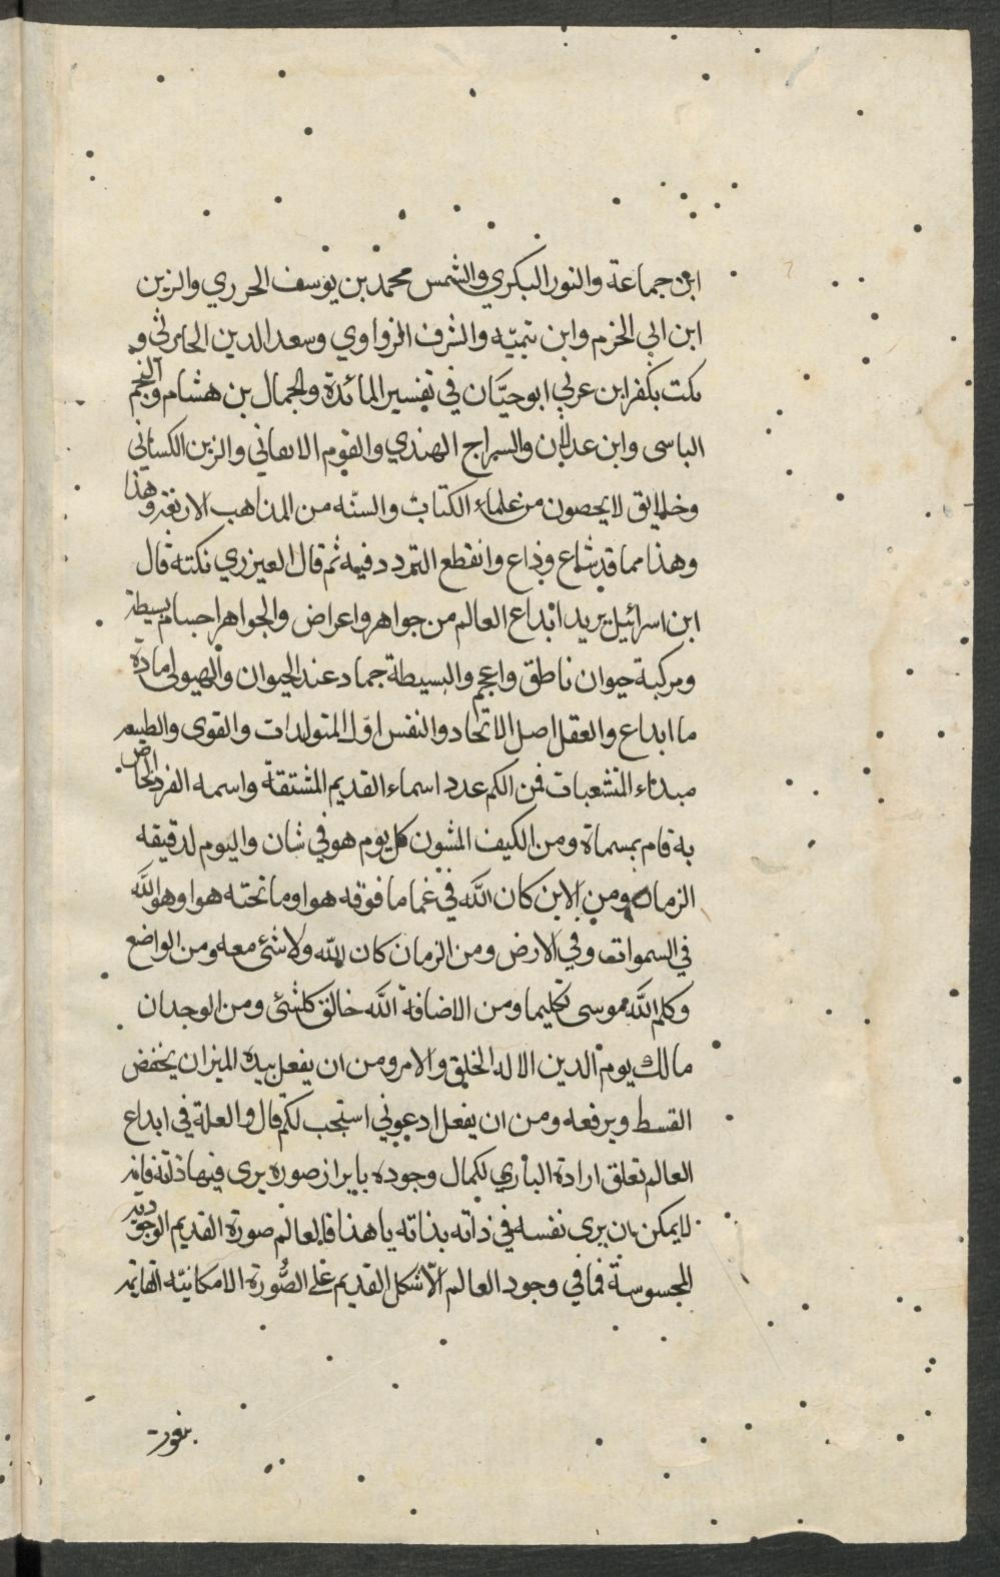 ابن جماعة والنور البكري والشمس محمد بن يوسف الجزري والزين
ابن ابي الخرم وابن تيميّه والشرف الزواوي وسعد الدين الحارثي و
نكت بكفر ابن عربي ابو حيّان في تفسير المائدة والجمال بن هشام والنجم
الباسى وابن عدلان والسراج الهندي والقوم الاتقاني والزين الكساني
وخلايق لا يحصون من علماء الكتاب والسنّه من المذاهب الاربعه وهذا
وهذا مما قد شاع وذاع وانقطع التردد فيه ثم قال العيزري نكته قال
ابن اسرائيل يريد ابداع العالم من جواهر واعراض والجواهر اجسام بسيطة
ومركبة حيوان ناطق واعجم والبسيطة جماد عند الحيوان والهيولى مادة
ما ابداع والعقل اصل الاتحاد والنفس اول المتولدات والقوى والطبيعه
مبداء المنشعبات فمن الكم عدد اسماء القديم المشتقة واسمه الفرد الخاص
به قام بمسماة ومن الكيف الشون كل يوم هو في شان واليوم لدقيقه
الزمان ومن الاين كان الله في عما ما فوقه هوا وما تحته هوا وهو الله
في السموات وفي الارض ومن الزمان كان الله ولا شئ معه ومن الواضع
وكلم الله موسى تكليما ومن الاضافة الله خالق كلشئ ومن الوجدان
مالك يوم الدين الا له الخلق والامر ومن ان يفعل بيده الميزان يخفض
القسط ويرفعه ومن ان يفعل ادعوني استجب لكم قال والعلة في ابداع
العالم تعلق ارادة الباري لكمال وجوده بابراز صوره يرى فيها ذاته فانه
لا يمكن ان يرى نفسه في ذاته بذاته يا هذا فالعالم صورة القديم الوجوديه
المحسوسة فما في وجود العالم الا شكل القديم على الصُّورة الامكانيّه القايمه